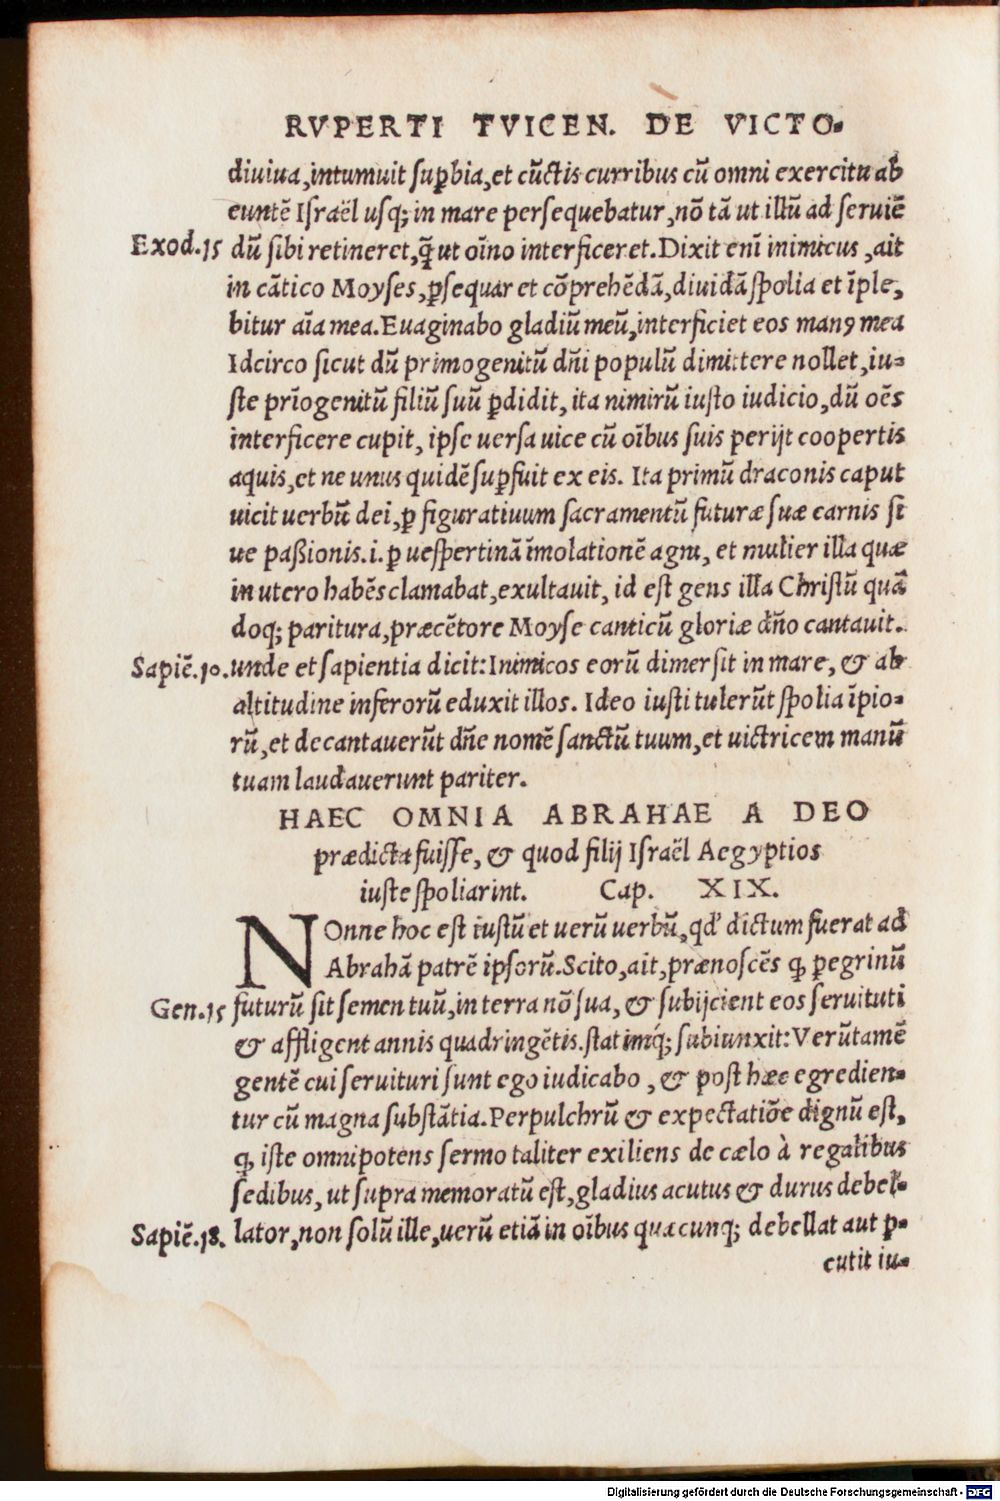 RVPERTI TVICEN. DE VICTO-
diuiua,intumuit suꝑbia,et cũctis curribus cũ omni exercitu ab
euntẽ Israël usq; in mare persequebatur,nõ tã ut illũ ad seruiẽ
Exod.15 dũ sibi retineret,q̃ ut oĩno interficeret.Dixit enĩ inimicus ,ait
in cãtico Moyses,ꝑsequar et cõprehẽdã,diuidã spolia et ĩple,
bitur aĩa mea.Euaginabo gladiũ meũ,interficiet eos manꝰ mea
Idcirco sicut dũ primogenitũ dñi populũ dimittere nollet,iu-
ste prĩogenitũ filiũ suũ ꝑdidit, ita nimirũ iusto iudicio,dũ oẽs
interficere cupit, ipse uersa uice cũ oĩbus suis perijt coopertis
aquis,et ne unus quidẽ suꝑfuit ex eis. Ita primũ draconis caput
uicit uerbũ dei,ꝑ figuratiuum sacramentũ futuræ suæ carnis si
ue paßionis.i.ꝑ uespertinã ĩmolationẽ agni, et mulier illa quæ
in utero habẽs clamabat,exultauit, id est gens illa Christũ quã
doq; paritura,præcẽtore Moyse canticũ gloriæ dño cantauit.
Sapiẽ.10. unde et sapientia dicit:Inimicos eorũ dimersit in mare, & ab
altitudine inferorũ eduxit illos. Ideo iusti tulerũt spolia ĩpio-
rũ,et decantauerũt dñe nomẽ sanctũ tuum,et uictricem manũ
tuam laudauerunt pariter.
HAEC OMNIA ABRAHAE A DEO
prædicta fuisse, & quod filij Israël Aegyptios
iuste spoliarint. Cap. XIX.
NOnne hoc est iustũ et uerũ uerbũ,qd' dictum fuerat ad
Abrahã patrẽ ipsorũ.Scito,ait,prænoscẽs ꝙ ꝑegrinũ
Gen.15 futurũ sit semen tuũ,in terra nõ sua, & subijcient eos seruituti
& affligent annis quadringẽtis.statimq́; subiunxit:Verũtamẽ
gentẽ cui seruituri sunt ego iudicabo , & post hæc egredien-
tur cũ magna substãtia.Perpulchrũ & expectatiõe dignũ est,
ꝙ iste omnipotens sermo taliter exiliens de cælo à regalibus
sedibus, ut supra memoratũ est,gladius acutus & durus debel-
Sapiẽ.18. lator,non solũ ille,uerũ etiã in oĩbus quæcunq; debellat aut ꝑ-
cutit iu-
Digitalisierung gefördert durch die Deutsche Forschungsgemeinschaft - DFG